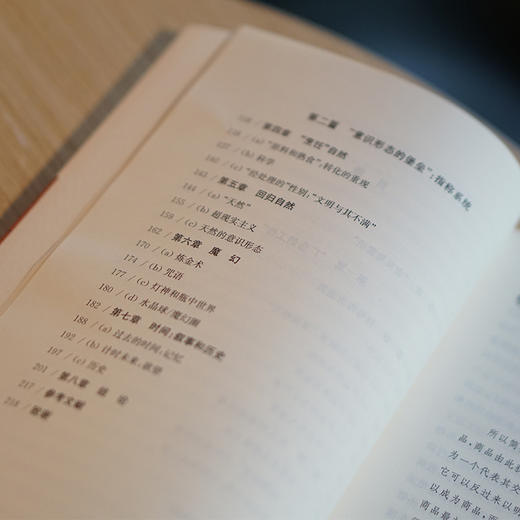 第二篇 “意识形态的堡垒”:指称系统
/ 第四章 “烹饪”自然
/ (a) “原料和熟食”:转化的重现
137 / (b) 科学
/ (c) “经处理的”性别:“文明与其不满”
/ 第五章 回归自然
144 / (a) “天然”
155 / (b) 超现实主义
159 / (c) 天然的意识形态
162 / 第六章 魔幻
170 / (a) 炼金术
174 / (b) 咒语
177 / (c) 灯神和瓶中世界
180 / (d) 水晶球/魔幻圈
182 / 第七章 时间:叙事和历史
188 / (a) 过去的时间:记忆
192 / (b) 计时未来:欲望
197 / (c) 历史
201 / 第八章 结论
217 / 参考文献
218 /
所以简
品,商品由此
为一个代表其交
它可以反过来以明
以成为商品,而
商品最